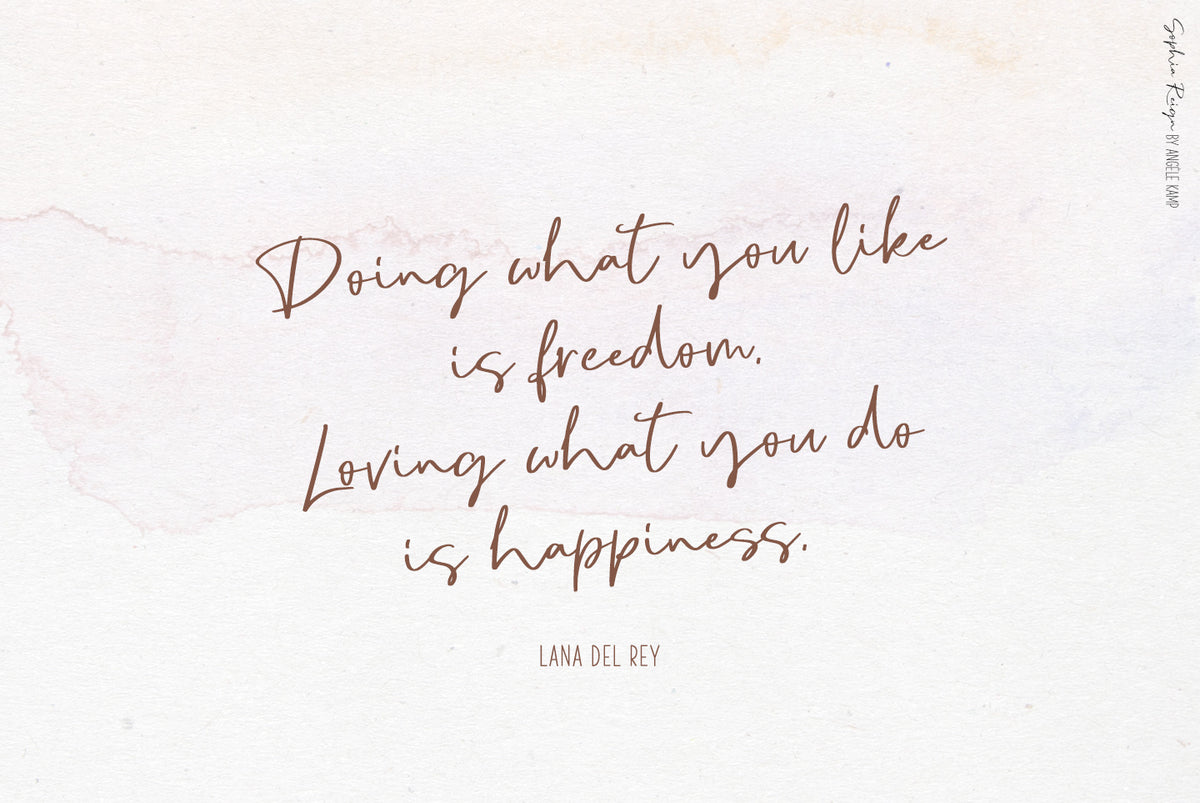 Doing what you like
is freedom.
Loving what you do
is happiness.
LANA DEL REY
Sophia Reign BY ANGÈLE KAMP